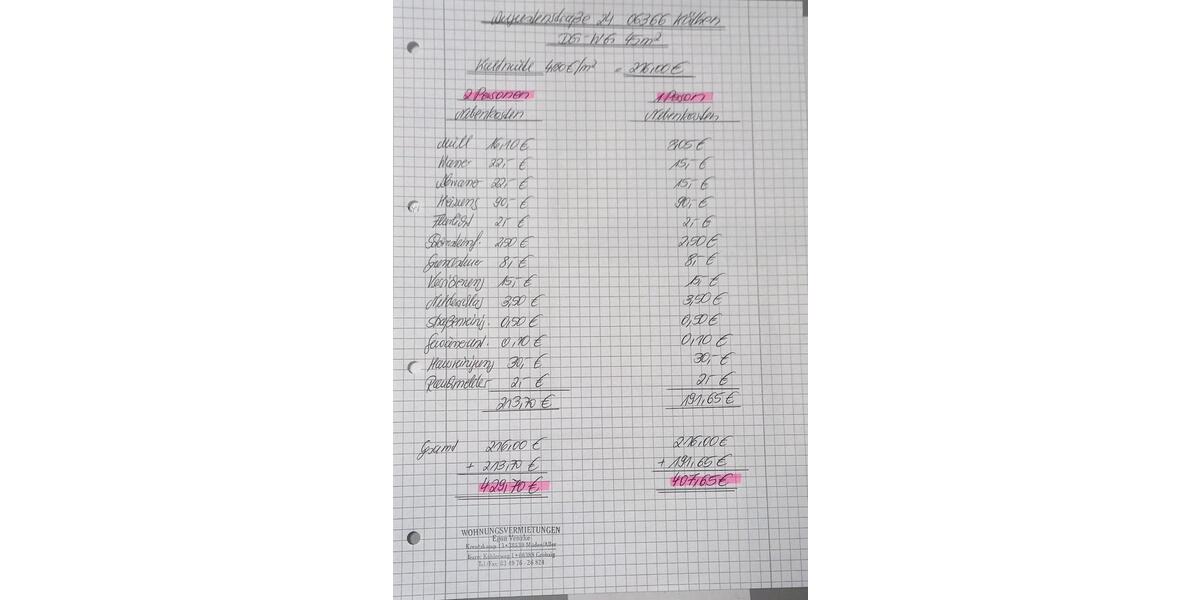 24 06366 Köthen
DG-WG 45m²
Kaltmiete 4,80€/m² = 216,00€
2 Personen 1 Person
Nebenkosten Nebenkosten
Müll 16,10€ 8,05€
Wasser 22,- € 15,- €
Abwasser 22,- € 15,- €
Heizung 90,- € 90,- €
2,- € 2,- €
2,50€ 2,50€
Grundsteuer 8,- € 8,- €
Versicherung 15,- € 15,- €
3,50€ 3,50€
Straßenreinig. 0,50€ 0,50€
0,10€ 0,10€
Hausreinigung 30,- € 30,- €
Rauchmelder 2,- € 2,- €
213,70€ 191,65€
Gesamt 216,00€ 216,00€
+ 213,70€ + 191,65€
429,70€ 407,65€
WOHNUNGSVERMIETUNGEN
Egon
Tel./Fax: